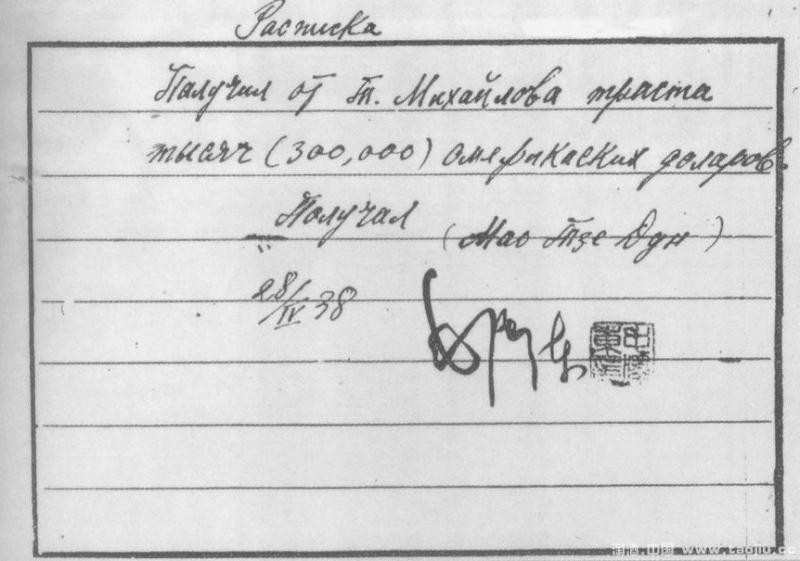 Расписка
Получил от т. Михайлова триста
тысяч (300,000) американских доларов
Получил (Мао Тзе Дун)
28/IV 38
www.taojiu.cc